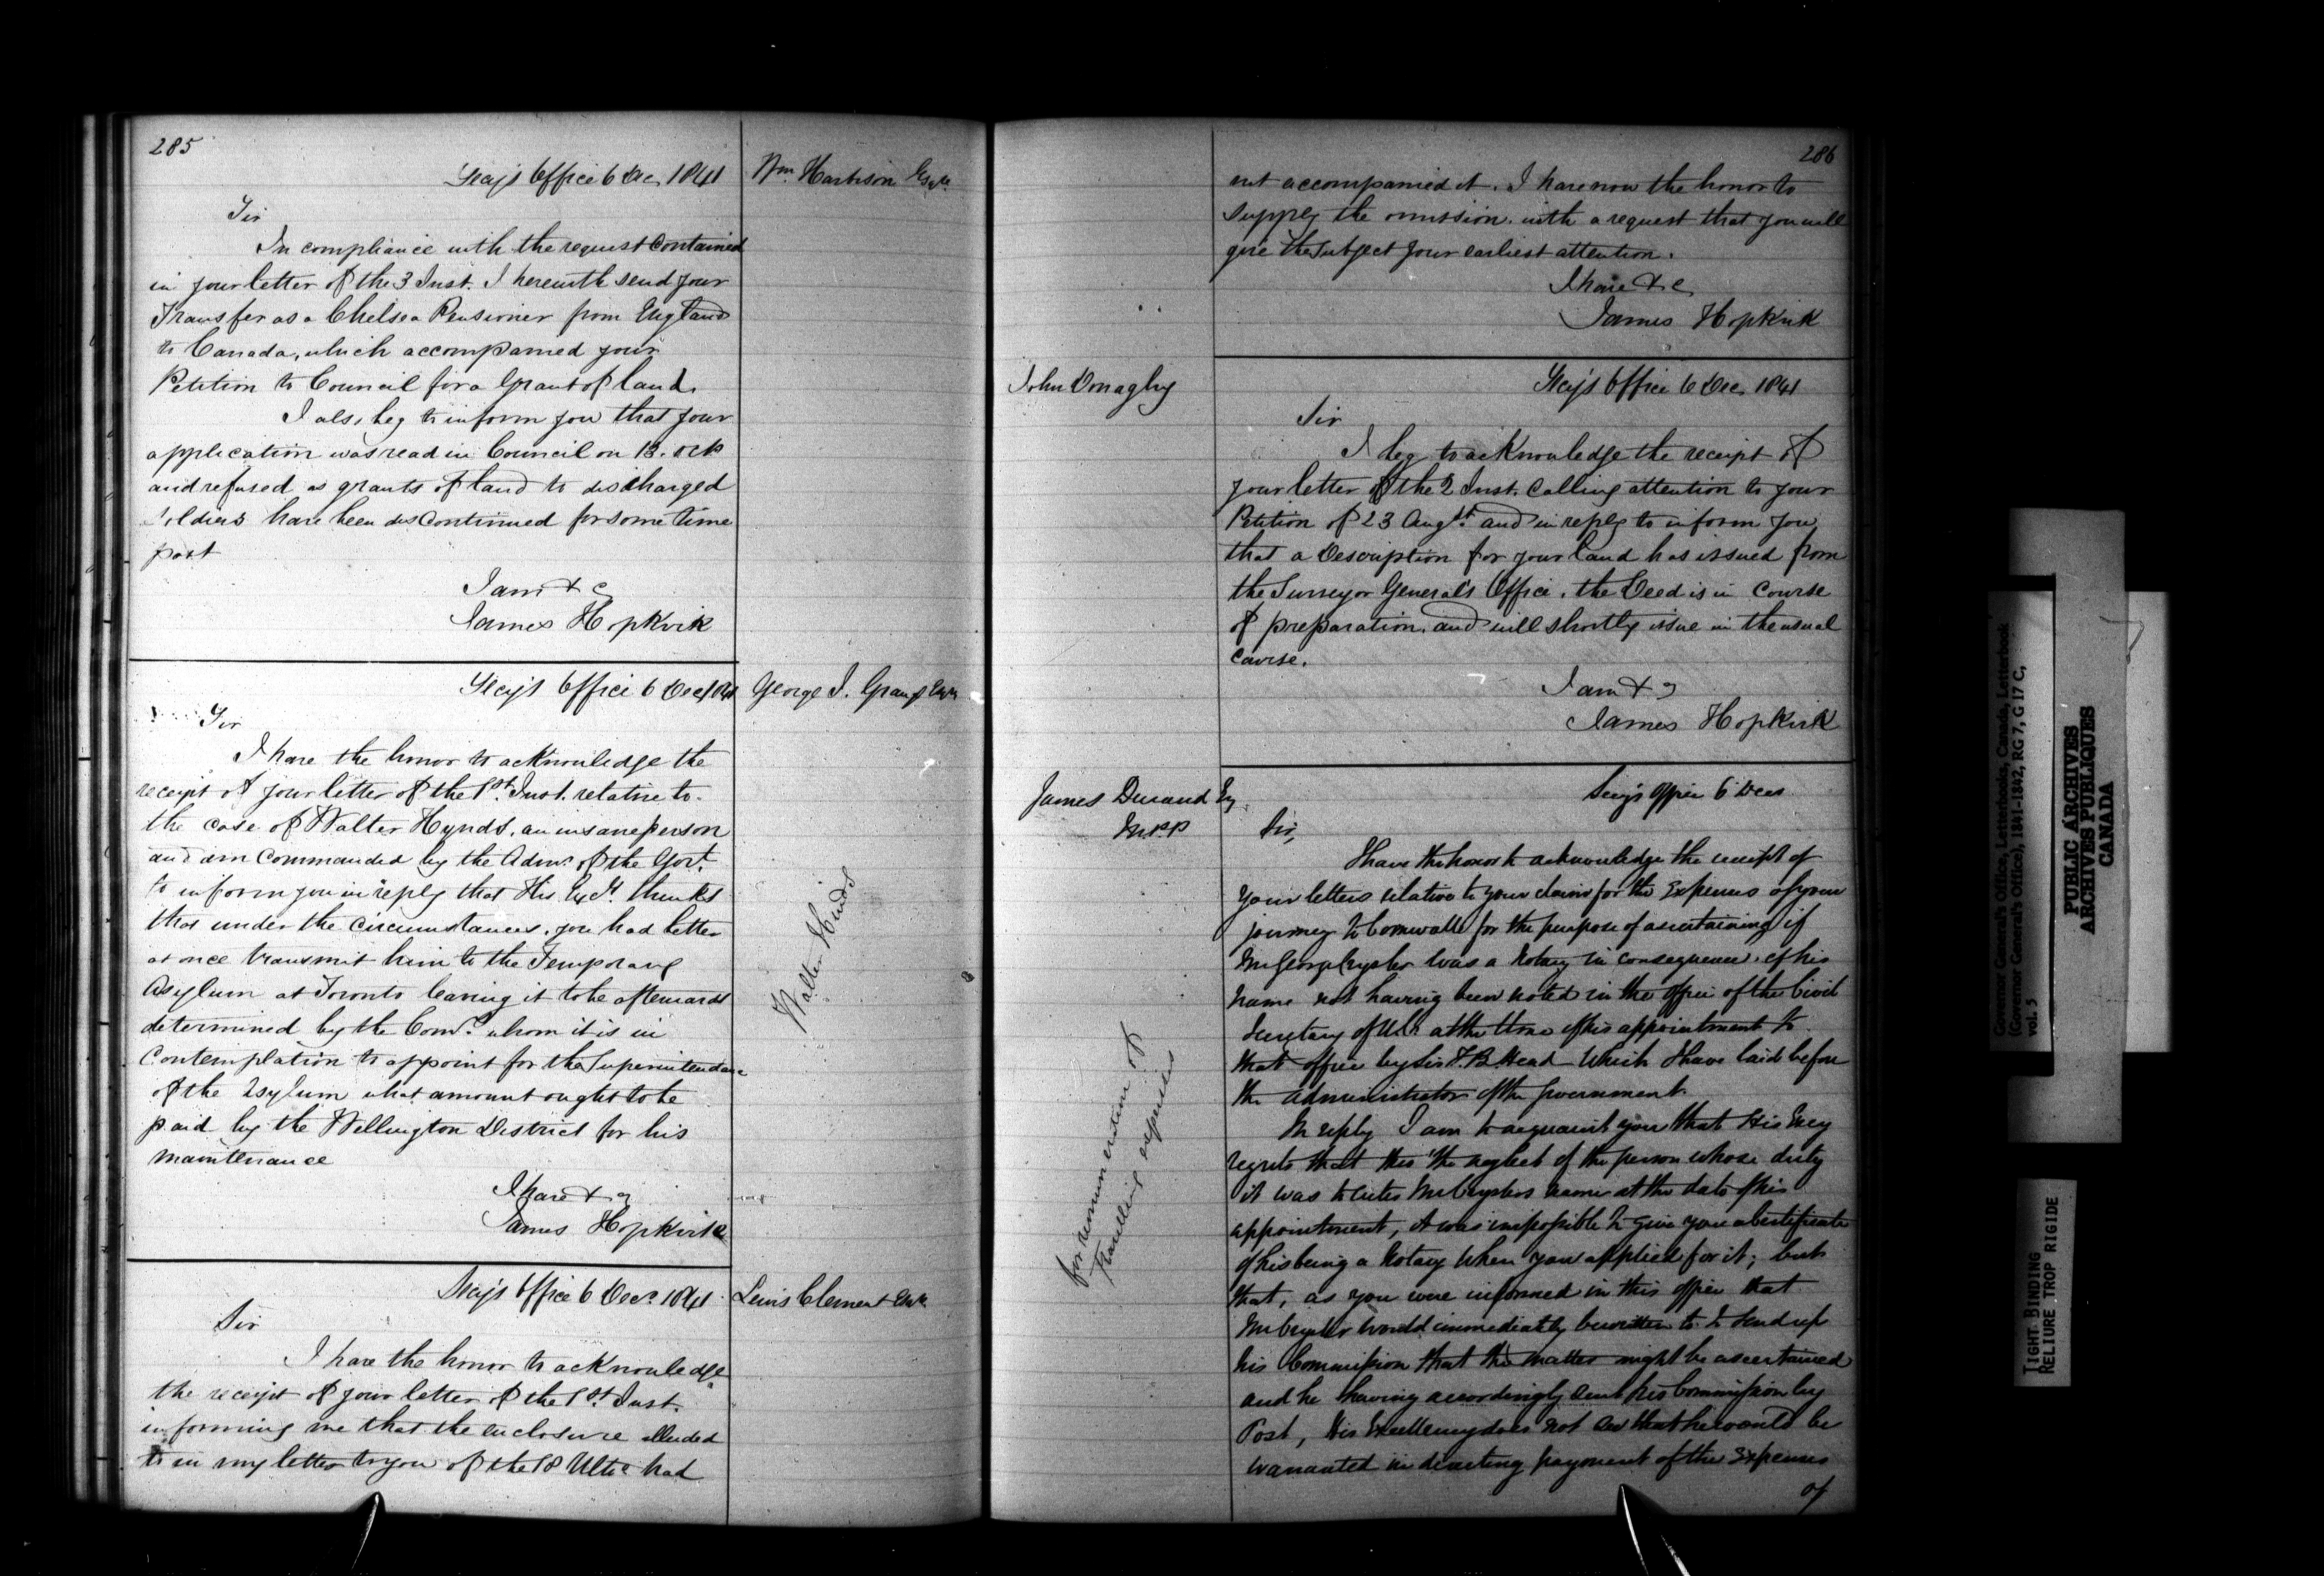 285
Secy's Office 6 Dec 1841
Wm. Harbison Esqr.
Sir
In compliance with the request contained
in your letter of the 3 Inst. I herewith send your
Transfer as a Chelsea Pensioner from England
to Canada, which accompanied your
Petition to Council for a Grant of land.
I also beg to inform you that your
application was read in Council on 13. Octr
and refused as grants of land to discharged
soldiers have been discontinued for some time
past
I am &c
James Hopkirk
Secy's Office 6 Dec 1841
George J. Grange Esqr
Sir
I have the honor to acknowledge the
receipt of your letter of the 1st. Inst. relative to
the case of Walter Hynds, an insane person
and am commanded by the Admr. of the Govt.
to inform you in reply that His Excy. thinks
that under the circumstances, you had better
at once transmit him to the Temporary
Asylum at Toronto leaving it to be afterwards
determined by the Comrs. whom it is in
contemplation to appoint for the Superintendance
of the Asylum what amount ought to be
paid by the Wellington District for his
maintenance
I have &c
James Hopkirk
Walter Hinds
Secy's Office 6 Decr. 1841
Lewis Clement Esqr.
Sir
I have the honor to acknowledge
the receipt of your letter of the 1st. Inst.
informing me that the enclosure alluded
to in my letter to you of the 18 Ulto. had
286
not accompanied it. I have now the honor to
supply the omission. with a request that you will
give the subject your earliest attention.
I have &c
James Hopkirk
John Donaghy
Secy's Office 6 Dec 1841
Sir
I beg to acknowledge the receipt of
your letter of the 2 Inst. calling attention to your
Petition of 23 Augst. and in reply to inform you,
that a Description for your land has issued from
the Surveyor General's Office, the Deed is in course
of preparation, and will shortly issue in the usual
course.
I am &c
James Hopkirk
James Durand Esq
M.P.P
Secy's Office 6 Decr
Sir,
I have the honor to acknowledge the receipt of
your letters relative to your claim for the Expenses of your
journey to Cornwall for the purpose of ascertaining if
Mr George Crysler was a Notary in consequence of his
name not having been noted in the office of the Civil
Secretary of U.C. at the time of his appointment to
that office by Sir F.B. Head Which I have laid before
the Administrator of the Government.
In reply I am to acquaint you that His Excy
regrets that thro' the neglect of the person whose duty
it was to enter Mr Cryslers name at the date of his
appointment, it was impossible to give you a Certificate
of his being a Notary when you applied for it; but
that, as you were informed in this office that
Mr Crysler would immediately be written to to send up
his Commission that the matter might be ascertained
and he having accordingly sent his Commission by
Post, His Excellency does not see that he would be
warranted in directing payment of the Expenses
of
for remuneration of
travelling expenses
Governor General's Office, Letterbooks, Canada, Letterbook
(Governor General's Office), 1841-1842, RG 7, G 17 C,
vol. 5
PUBLIC ARCHIVES
ARCHIVES PUBLIQUES
CANADA
TIGHT BINDING
RELIURE TROP RIGIDE